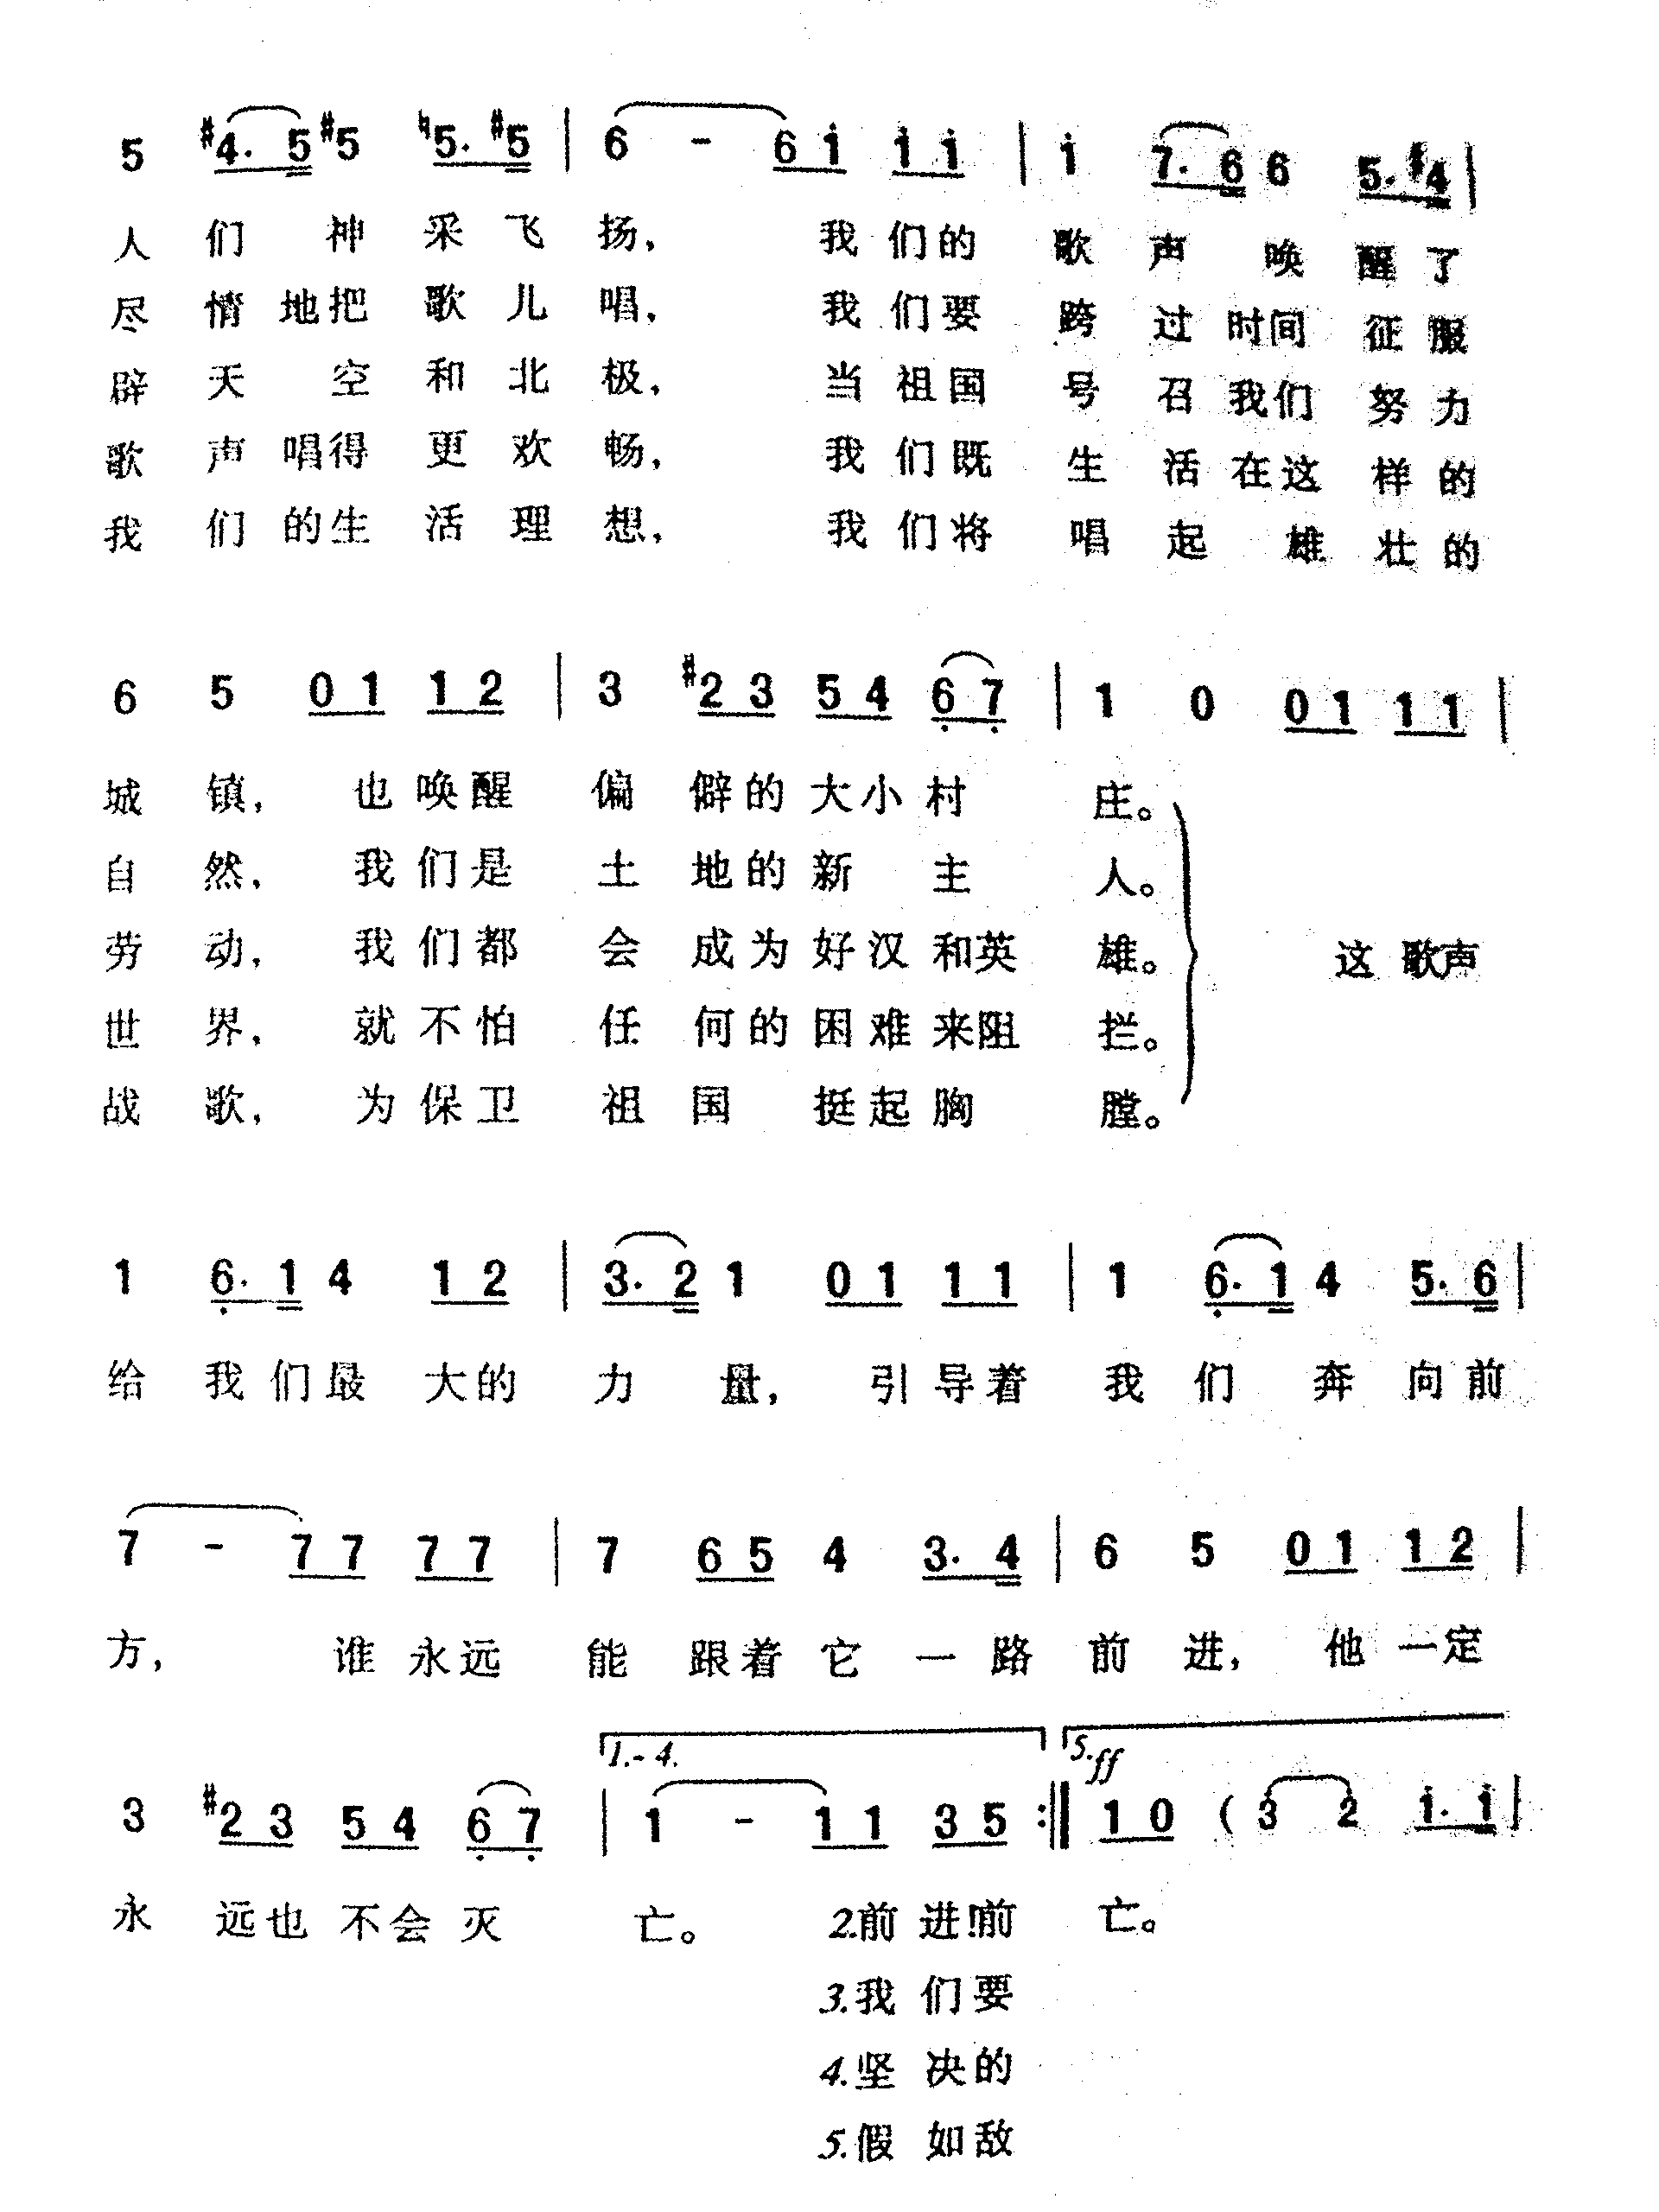 5 #4. 5 #5 ♮5. #5 | 6 - 6 i i i | i 7. 6 6 5. #4 |
人 们 神 采 飞 扬， 我 们 的 歌 声 唤 醒 了
尽 情 地 把 歌 儿 唱， 我 们 要 跨 过 时 间 征 服
辟 天 空 和 北 极， 当 祖 国 号 召 我 们 努 力
歌 声 唱 得 更 欢 畅， 我 们 既 生 活 在 这 样 的
我 们 的 生 活 理 想， 我 们 将 唱 起 雄 壮 的
6 5 0 1 1 2 | 3 #2 3 5 4 6 7 | 1 0 0 1 1 1 |
城 镇， 也 唤 醒 偏 僻 的 大 小 村 庄。
自 然， 我 们 是 土 地 的 新 主 人。
劳 动， 我 们 都 会 成 为 好 汉 和 英 雄。 这 歌 声
世 界， 就 不 怕 任 何 的 困 难 来 阻 拦。
战 歌， 为 保 卫 祖 国 挺 起 胸 膛。
1 6. 1 4 1 2 | 3. 2 1 0 1 1 1 | 1 6. 1 4 5. 6 |
给 我 们 最 大 的 力 量， 引 导 着 我 们 奔 向 前
7 - 7 7 7 7 | 7 6 5 4 3. 4 | 6 5 0 1 1 2 |
方， 谁 永 远 能 跟 着 它 一 路 前 进， 他 一 定
1.- 4. 5. ff
3 #2 3 5 4 6 7 | 1 - 1 1 3 5 :‖ 1 0 ( 3 2 i. i |
永 远 也 不 会 灭 亡。 2.前 进!前 亡。
3.我 们 要
4.坚 决 的
5.假 如 敌